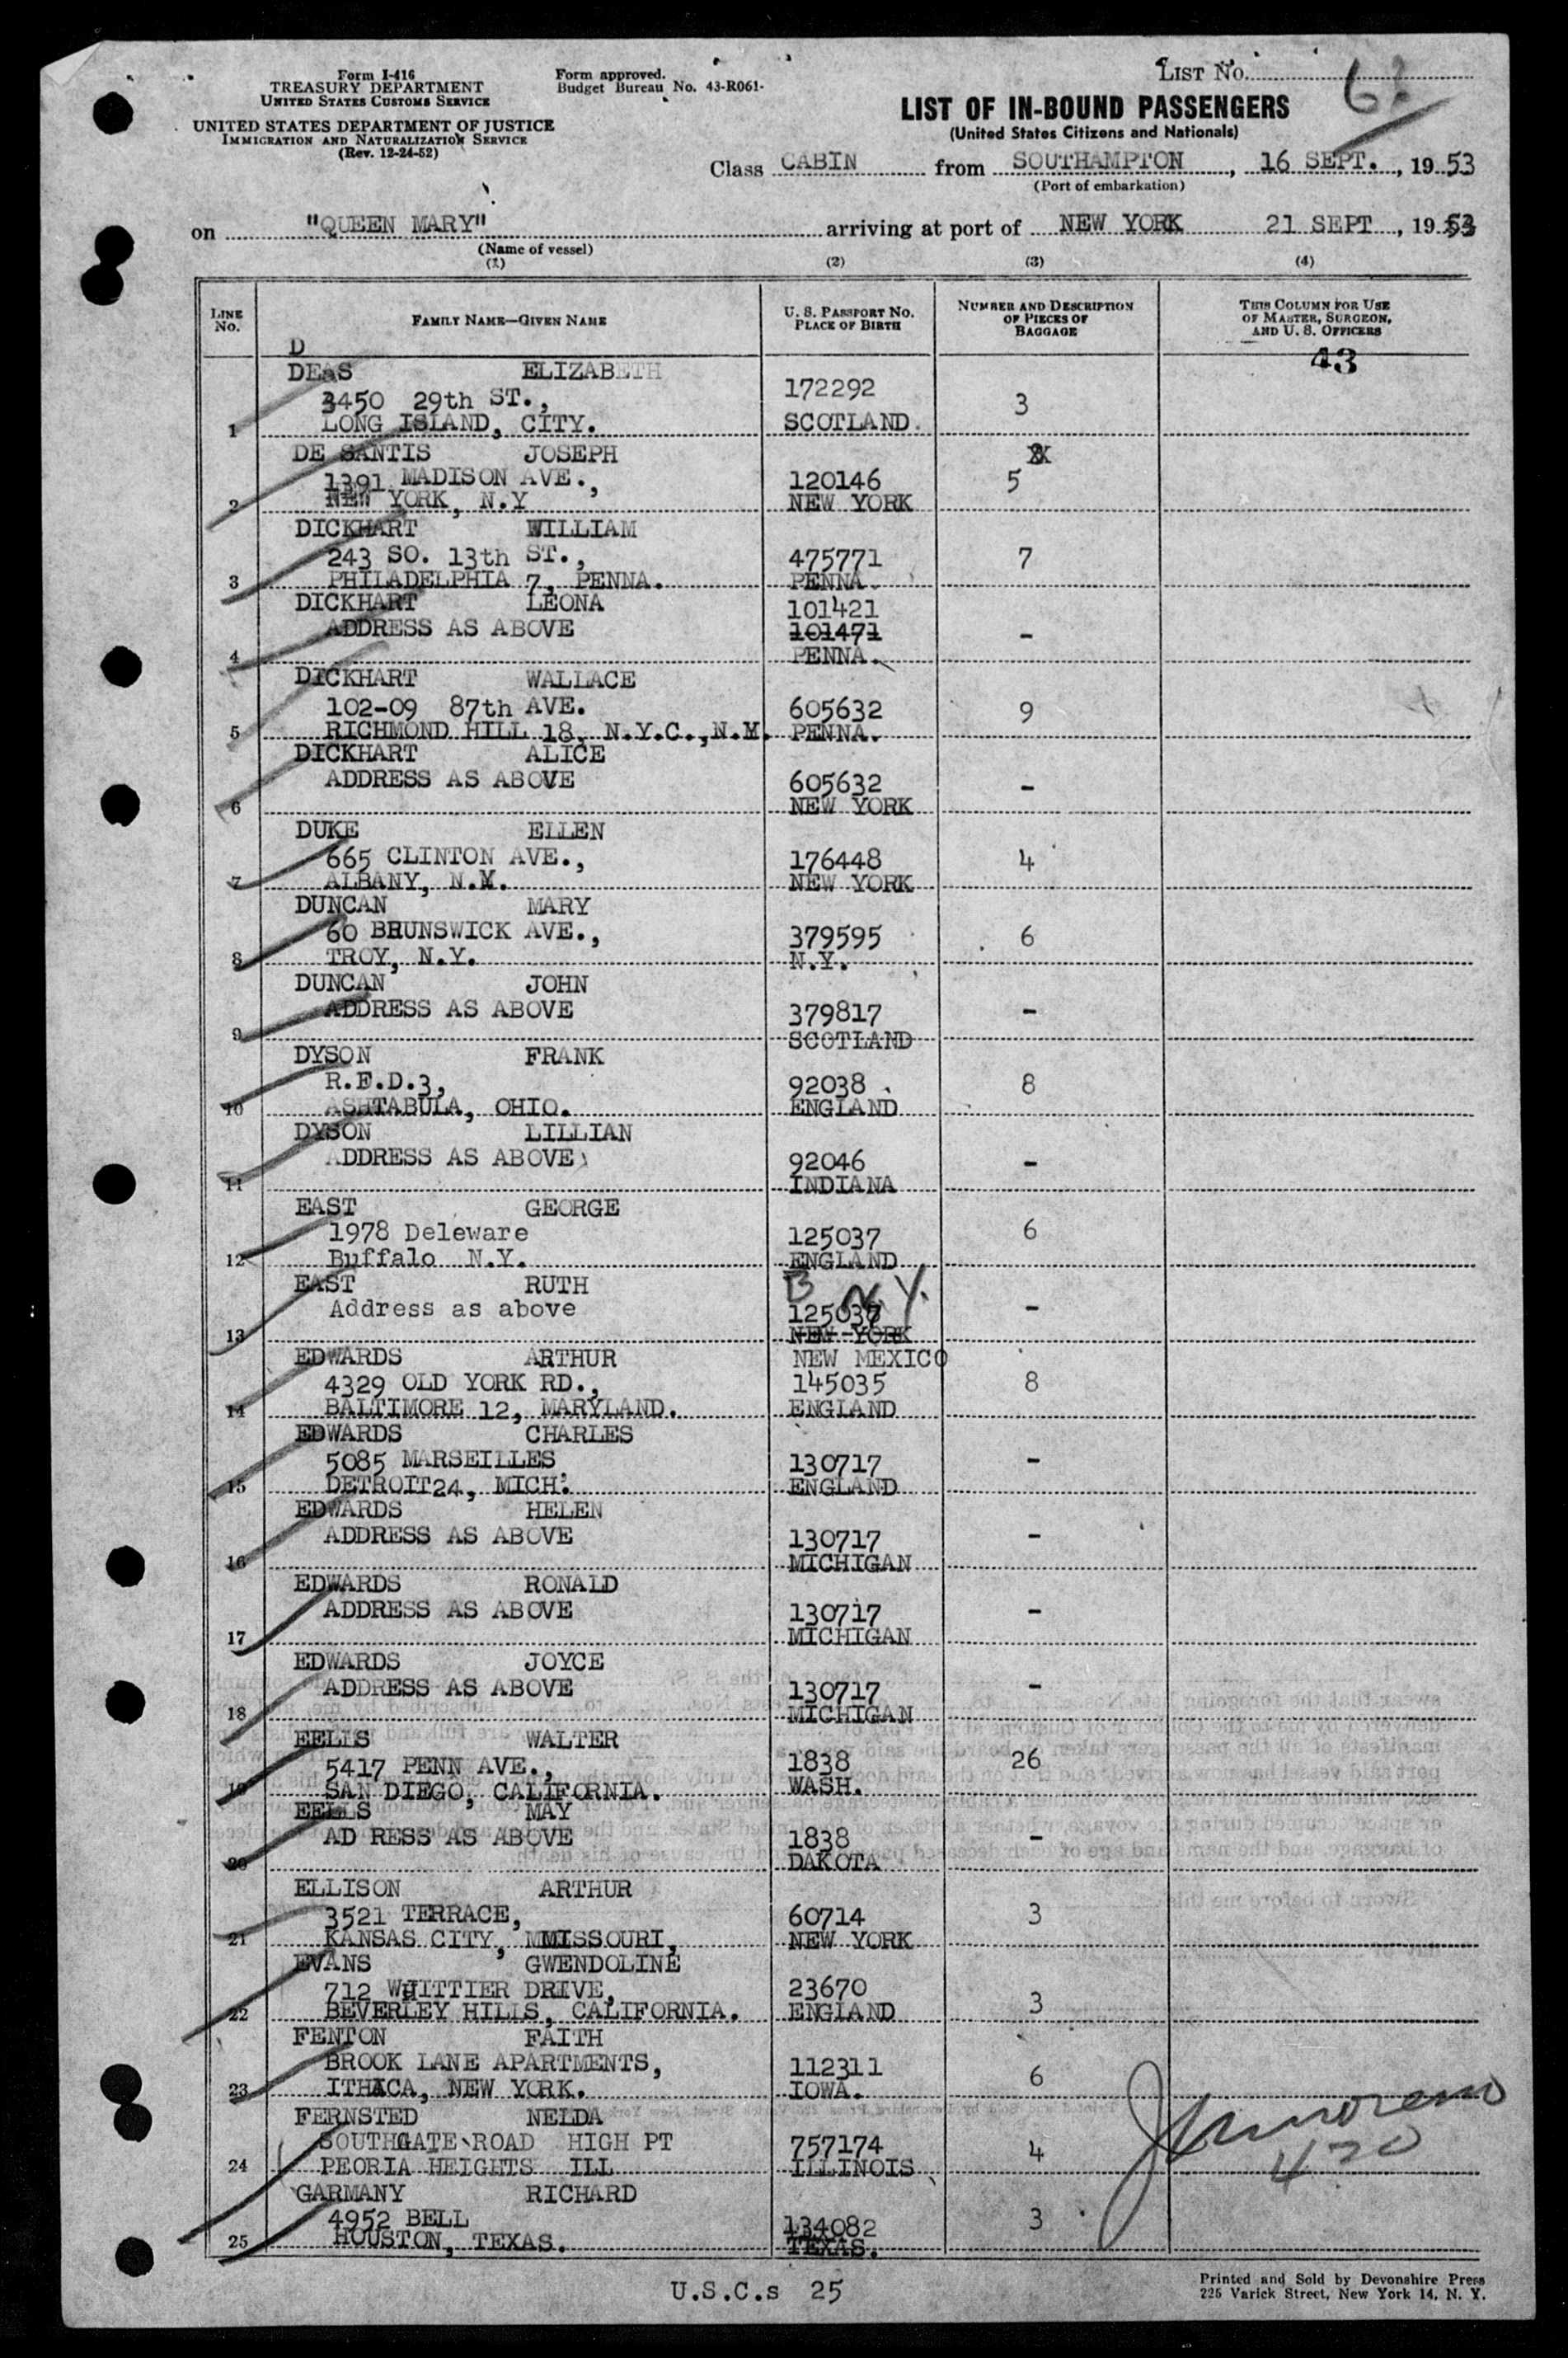 Form I-416
TREASURY DEPARTMENT
UNITED STATES CUSTOMS SERVICE
UNITED STATES DEPARTMENT OF JUSTICE
IMMIGRATION AND NATURALIZATION SERVICE
(Rev. 12-24-52)
Form approved.
Budget Bureau No. 43-R061-
LIST No.
LIST OF IN-BOUND PASSENGERS
(United States Citizens and Nationals)
Class CABIN from SOUTHAMPTON, 16 SEPT., 1953
(Port of embarkation)
on "QUEEN MARY" arriving at port of NEW YORK 21 SEPT, 1953
(Name of vessel)
(1) (2) (3) (4)
LINE No. FAMILY NAME—GIVEN NAME U. S. PASSPORT No. PLACE OF BIRTH NUMBER AND DESCRIPTION OF PIECES OF BAGGAGE THIS COLUMN FOR USE OF MASTER, SURGEON, AND U. S. OFFICERS
D
43
DEAS ELIZABETH
3450 29th ST., 172292 3
1 LONG ISLAND, CITY. SCOTLAND.
DE SANTIS JOSEPH
1391 MADISON AVE., 120146 5
2 NEW YORK, N.Y NEW YORK
DICKHART WILLIAM
243 SO. 13th ST., 475771 7
3 PHILADELPHIA 7, PENNA. PENNA.
DICKHART LEONA 101421
ADDRESS AS ABOVE 101471 -
4 PENNA.
DICKHART WALLACE
102-09 87th AVE. 605632 9
5 RICHMOND HILL 18, N.Y.C.,N.Y. PENNA.
DICKHART ALICE
ADDRESS AS ABOVE 605632 -
6 NEW YORK
DUKE ELLEN
665 CLINTON AVE., 176448 4
7 ALBANY, N.Y. NEW YORK
DUNCAN MARY
60 BRUNSWICK AVE., 379595 6
8 TROY, N.Y. N.Y.
DUNCAN JOHN
ADDRESS AS ABOVE 379817 -
9 SCOTLAND
DYSON FRANK
R.F.D.3, 92038 8
10 ASHTABULA, OHIO. ENGLAND
DYSON LILLIAN
ADDRESS AS ABOVE 92046 -
11 INDIANA
EAST GEORGE
1978 Deleware 125037 6
12 Buffalo N.Y. ENGLAND
EAST RUTH B N.Y.
Address as above 125037 -
13 NEW YORK
EDWARDS ARTHUR NEW MEXICO
4329 OLD YORK RD., 145035 8
14 BALTIMORE 12, MARYLAND. ENGLAND
EDWARDS CHARLES
5085 MARSEILLES. 130717 -
15 DETROIT24, MICH. ENGLAND
EDWARDS HELEN
ADDRESS AS ABOVE 130717 -
16 MICHIGAN
EDWARDS RONALD
ADDRESS AS ABOVE 130717 -
17 MICHIGAN
EDWARDS JOYCE
ADDRESS AS ABOVE 130717 -
18 MICHIGAN
EELLS WALTER
5417 PENN AVE., 1838 26
19 SAN DIEGO, CALIFORNIA. WASH.
EELLS MAY
AD RESS AS ABOVE 1838 -
20 DAKOTA
ELLISON ARTHUR
3521 TERRACE, 60714 3
21 KANSAS CITY, MISSOURI, NEW YORK
EVANS GWENDOLINE
712 WHITTIER DRIVE, 23670 3
22 BEVERLEY HILLS, CALIFORNIA. ENGLAND
FENTON FAITH
BROOK LANE APARTMENTS, 112311 6
23 ITHACA, NEW YORK. IOWA.
FERNSTED NELDA
SOUTHGATE ROAD HIGH PT 757174 4
24 PEORIA HEIGHTS ILL ILLINOIS
GARMANY RICHARD
4952 BELL 134082 3
25 HOUSTON, TEXAS. TEXAS.
420
U.S.C.s 25
Printed and Sold by Devonshire Press
225 Varick Street, New York 14, N. Y.